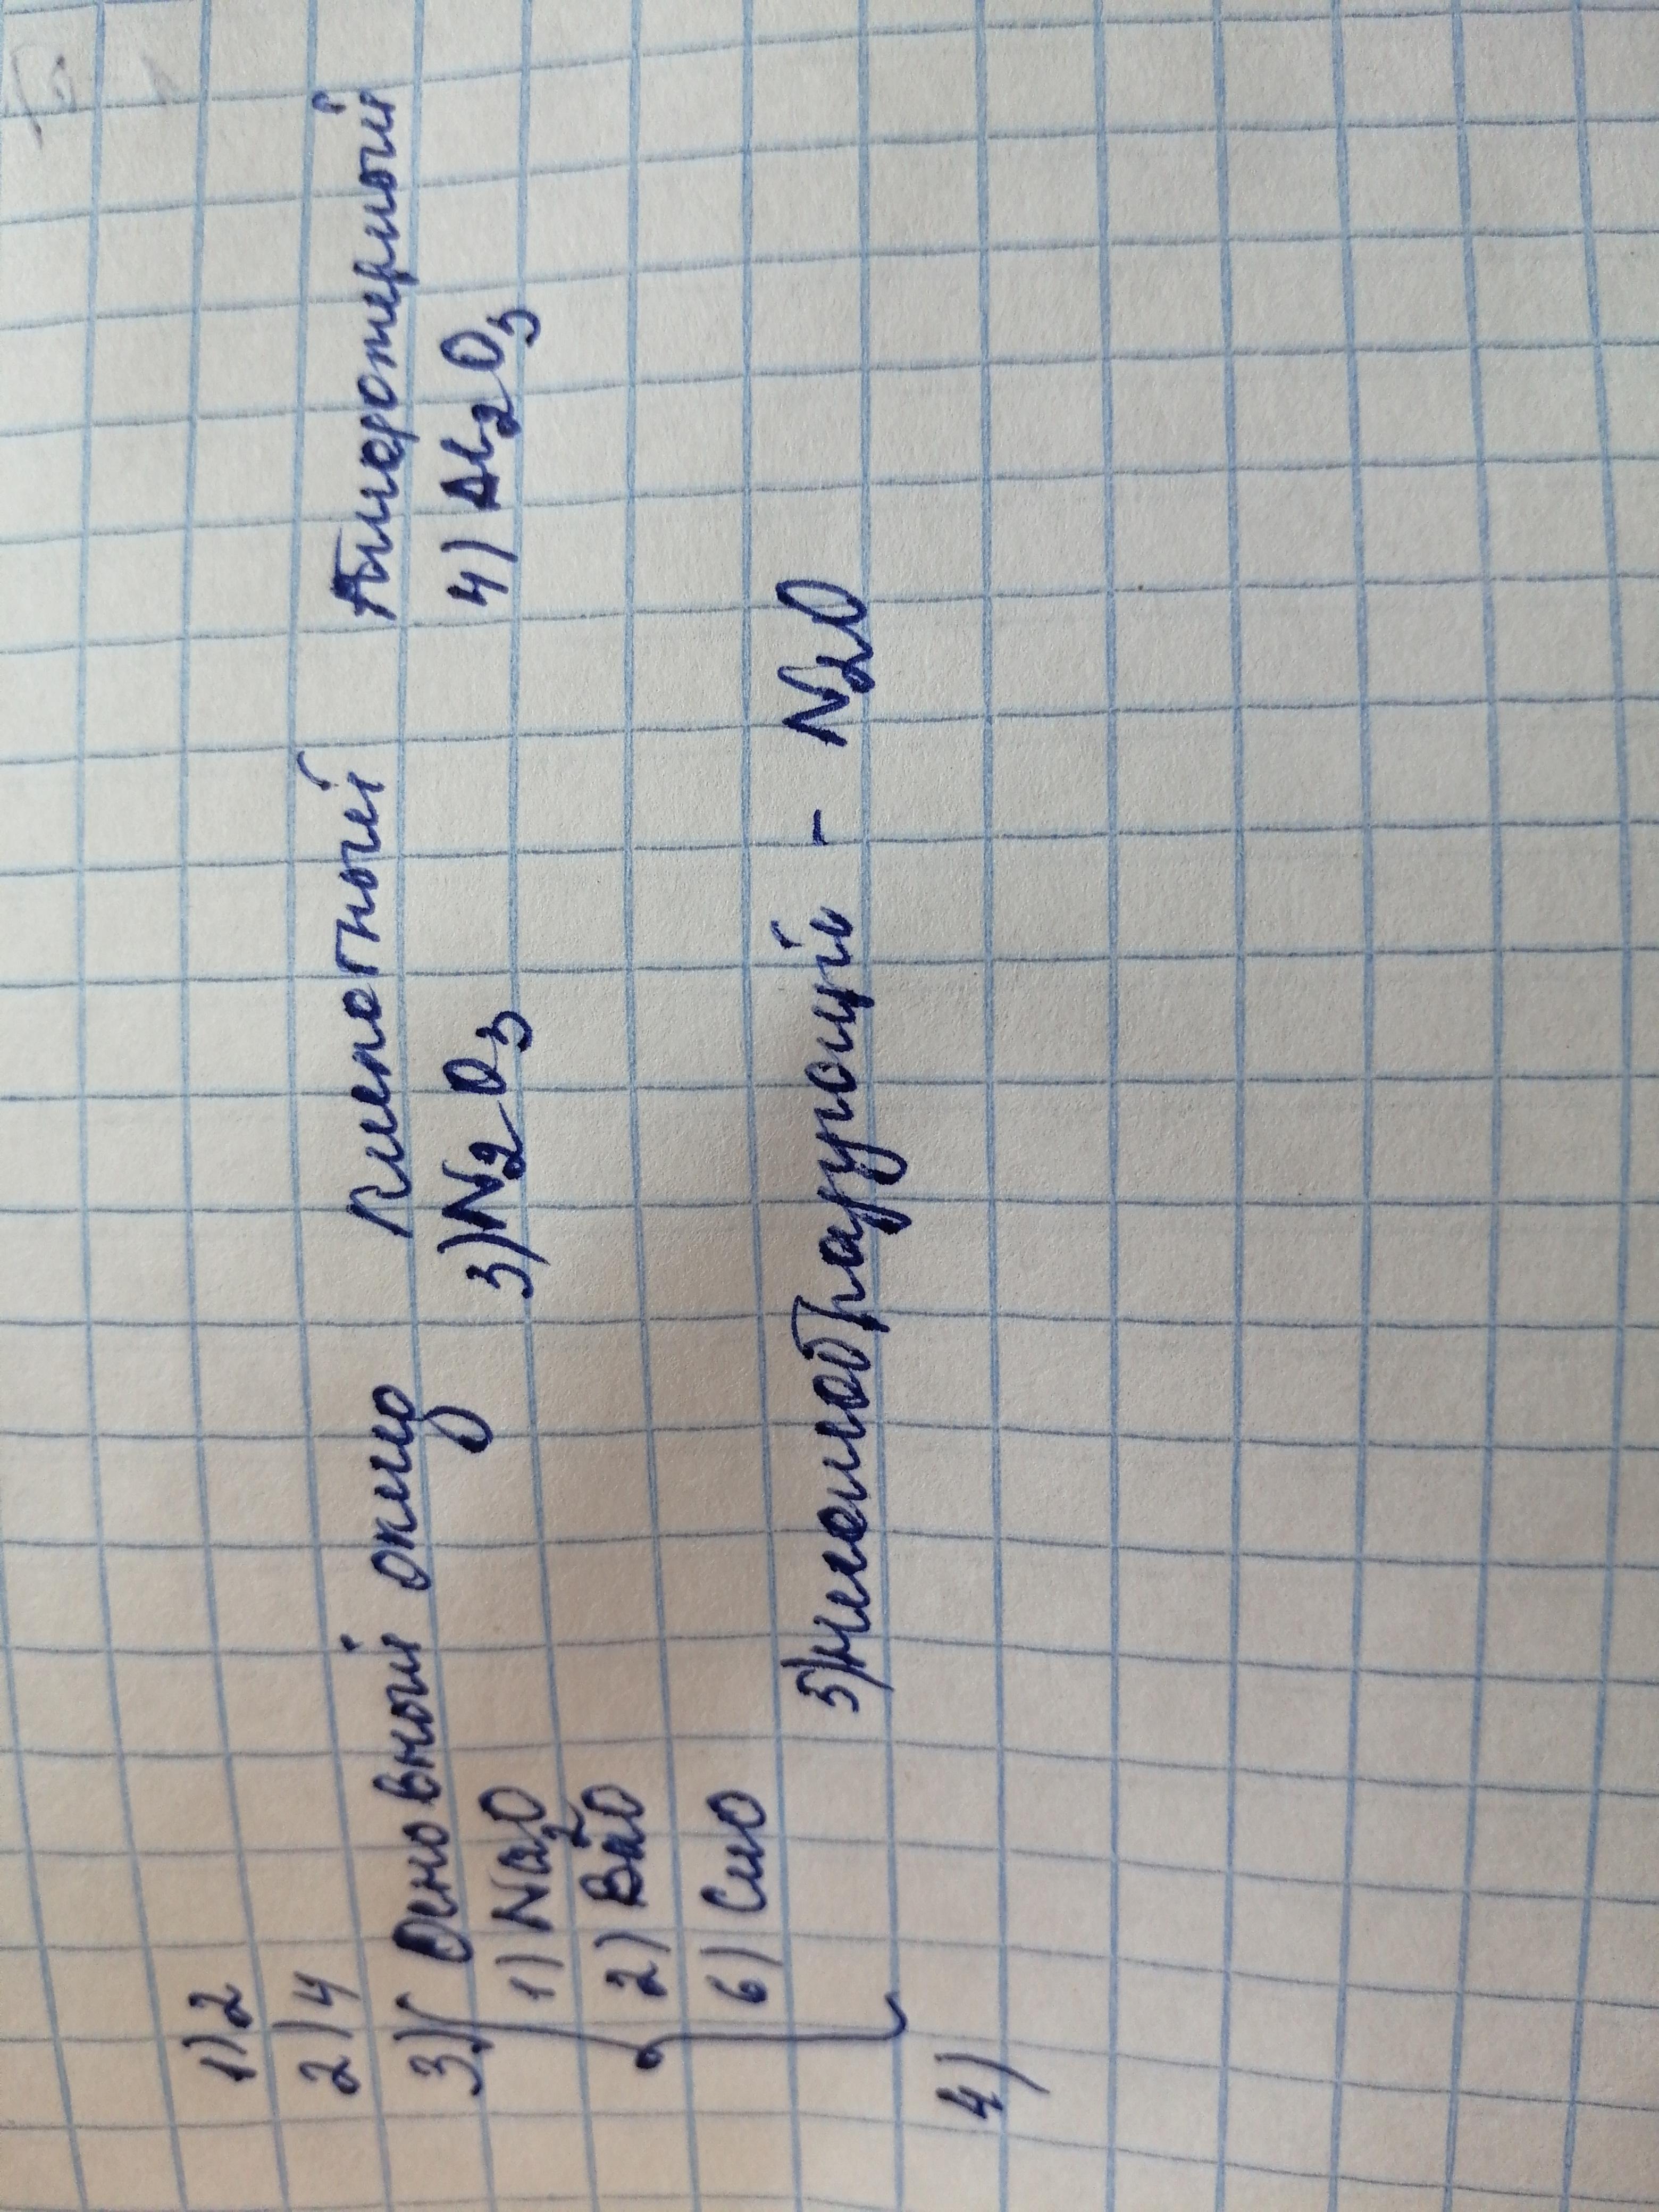 1) 2
2) 4
3) Основный оксид Кислотный Амфотерный
1) Na2O 3) N2O3 4) Al2O3
2) BaO
6) CuO 5) несолеобразующий - N2O
4)